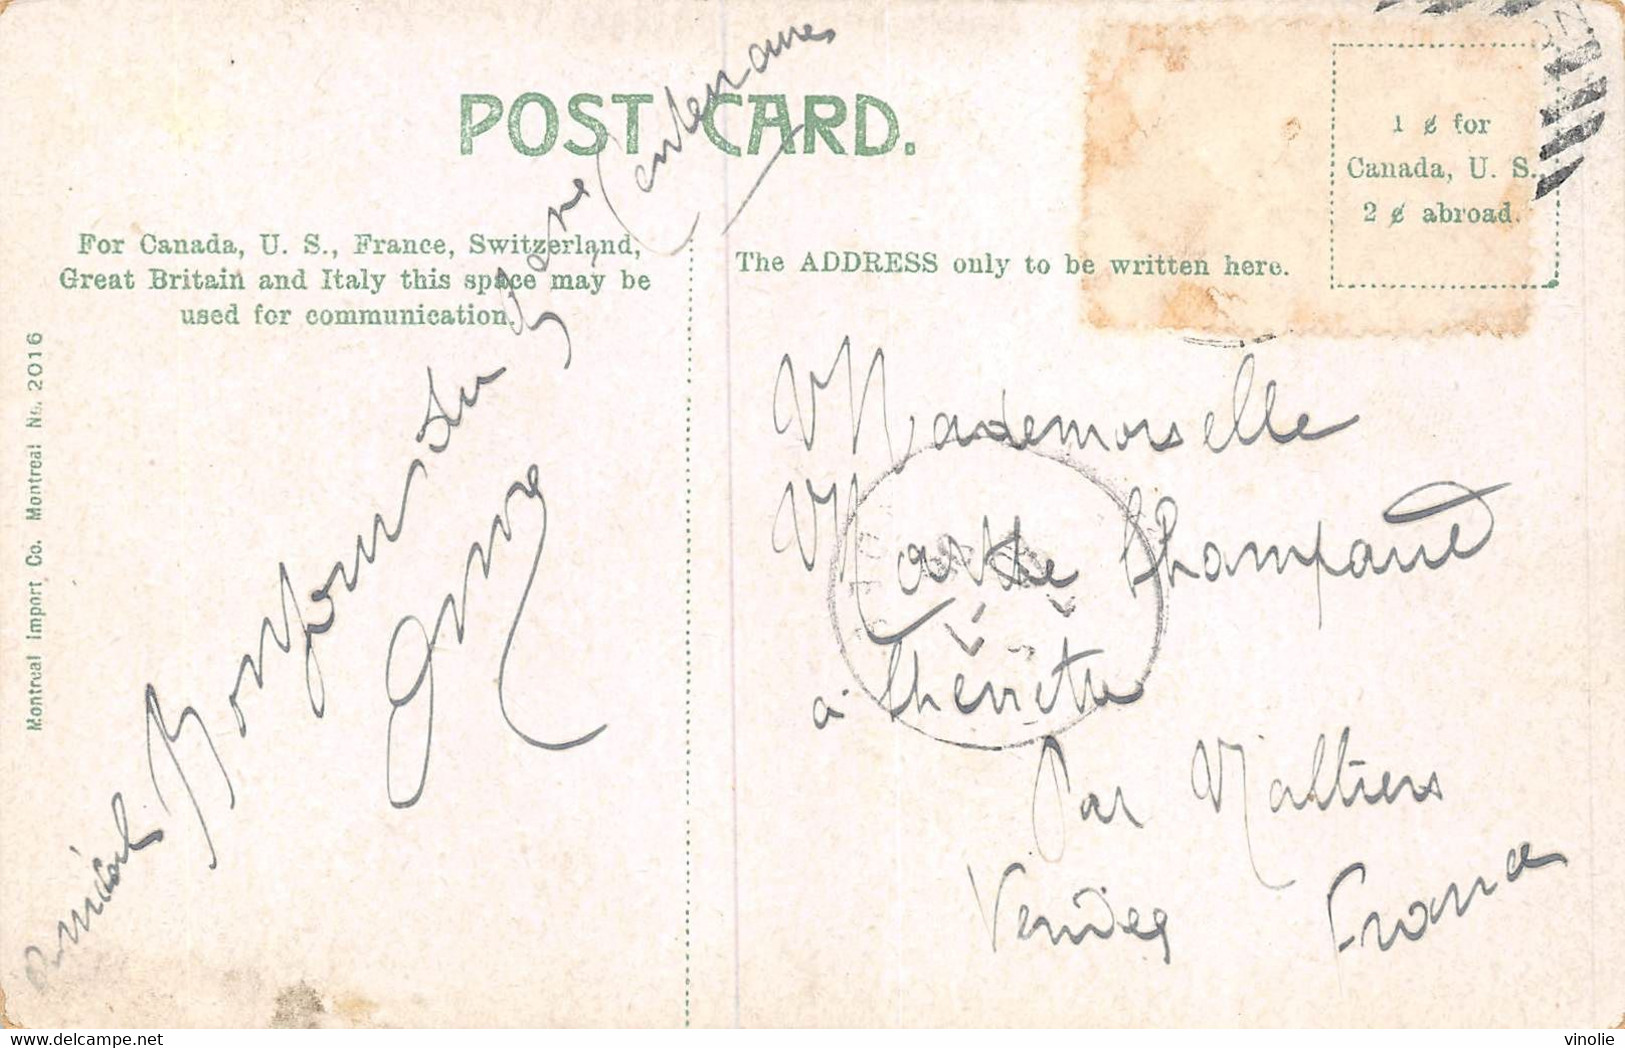 POST CARD.
1 ¢ for
Canada, U. S.,
2 ¢ abroad.
For Canada, U. S., France, Switzerland,
Great Britain and Italy this space may be
used for communication.
The ADDRESS only to be written here.
Montreal Import Co. Montreal No. 2016
amical Bonjour du
Mademoiselle
Marthe
à
Par
Vendée France
delcampe.net
vinolie